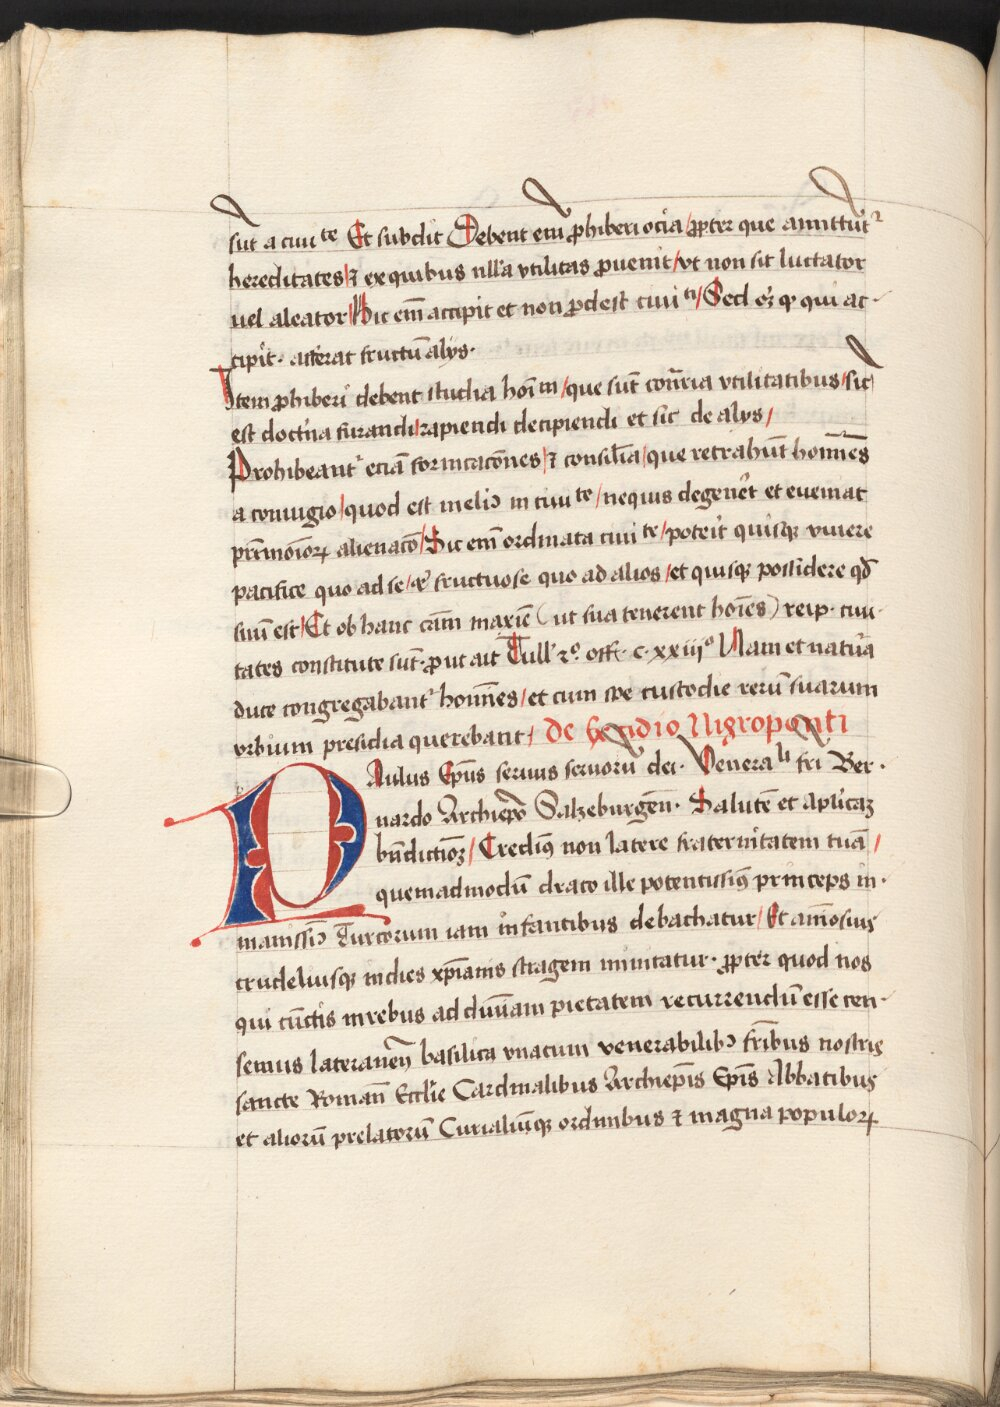 sūt a ciuite Et subdit Debent em̄ ꝓhiberi ocia / ꝓpter que amittūtʳ
hereditates / ⁊ ex quibus nll̓a vtilitas ꝓuenit / vt non sit luctator
uel aleator / Hic em̄ accipit et non ꝓdest ciuiti / Sed eꝫ ꝙ qui ac-
cipit· afferat fructū alijs·
Item ꝓhiberi debent studia hoīm / que sūt cōr̄ria vtilitatibus / sic
est doctͥna furandi / rapiendi decipiendi et sic de alijs /
Prohibeantʳ eciā fornicacōnes / ⁊ consilia / que retrahūt homīes
a coniugio / quod est meliꝰ in ciuite / nequis degenēt et eueniat
pr̄imōioꝝ alienacō / Sic em̄ ordinata ciuite / poterit quisqꝫ viuere
pacifice quo ad se / et fructuose quo ad alios / et quisqꝫ possidere qd̄
suū est / Et ob hanc cām maxīe (ut sua tenerent hoīes) reip· ciui-
tates constitute sūt· ꝓut ait Tull̓ 2º· off· c· xxiiijº Nam et natūa
duce congregabantʳ homīes / et cum spe custodie rerū suarum
vrbium presidia querebant / De excidio Nigroponti
PAulus Ep̄us seruus seruorū dei· Venerali fri Ber-
nardo Archiep̄o Salzeburgeñ· Salutē et aplicaꝫ
bn̄dictionꝫ / Credimꝰ non latere fraternitatem tuā /
quemadmodū draco ille potentissimꝰ princeps in-
manissiꝰ Turcorum iam infantibus debachatur / Et aīosius
crudeliusqꝫ indies xp̄ianis stragem minitatur· ꝓpter quod nos
qui cūctis in rebus ad diuīam pietatem recurrendū esse cen-
semus lateraneñ basilica vnacum venerabilibꝰ frībus nostris
sancte Romañ Eccl̓ie Cardinalibus Archiep̄is Ep̄is Abbatibus
et aliorū prelatorū Curialiūqꝫ ordinibus ⁊ magna populoꝝ